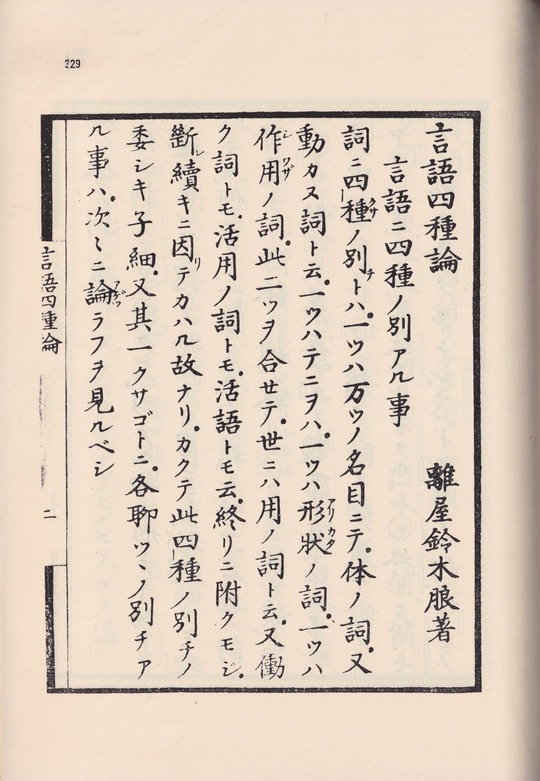 329
言語四種論　離屋鈴木朖著
言語ニ四種ノ別アル事
詞ニ四種ノ別トハ。一ツハ万ツノ名目ニテ。体ノ詞。又
動カヌ詞ト云。一ツハテニヲハ。一ツハ形状ノ詞。一ツハ
作用ノ詞。此二ツヲ合セテ。世ニハ用ノ詞ト云。又働
ク詞トモ。活用ノ詞トモ。活語トモ云。終リニ附クモジ。
斷續キニ因テカハル故ナリ。カクテ此四種ノ別チノ
委シキ子細。又其一クサゴトニ。各聊ツヽノ別チア
ル事ハ。次々ニ論ラフヲ見ルベシ
言語四種論
二